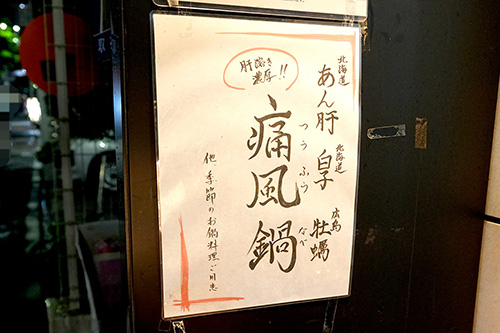 北海道
あん肝
北海道
白子
広島
牡蠣
肝溶き
濃厚!!
痛風鍋
つうふうなべ
他、季節のお鍋料理ご用意